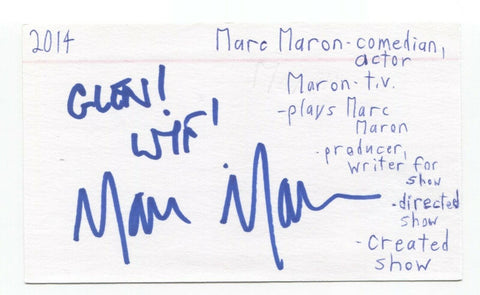 2014
Marc Maron-comedian,
actor
Maron-t.v.
-plays Marc
Maron
-producer,
writer for
show
-directed
show
-created
show
GLEN!
WTF!
Marc Maron